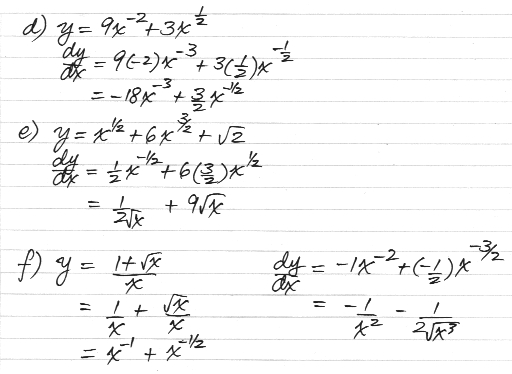 d) y = 9x⁻² + 3x^½
dy/dx = 9(-2)x⁻³ + 3(½)x^-½
= -18x⁻³ + 3/2 x^-1/2
e) y = x^1/2 + 6x^3/2 + √2
dy/dx = ½x^-1/2 + 6(3/2)x^1/2
= 1/2√x + 9√x
f) y = (1+√x)/x
= 1/x + √x/x
= x⁻¹ + x^-1/2
dy/dx = -1x⁻² + (-½)x^-3/2
= -1/x² - 1/2√x³